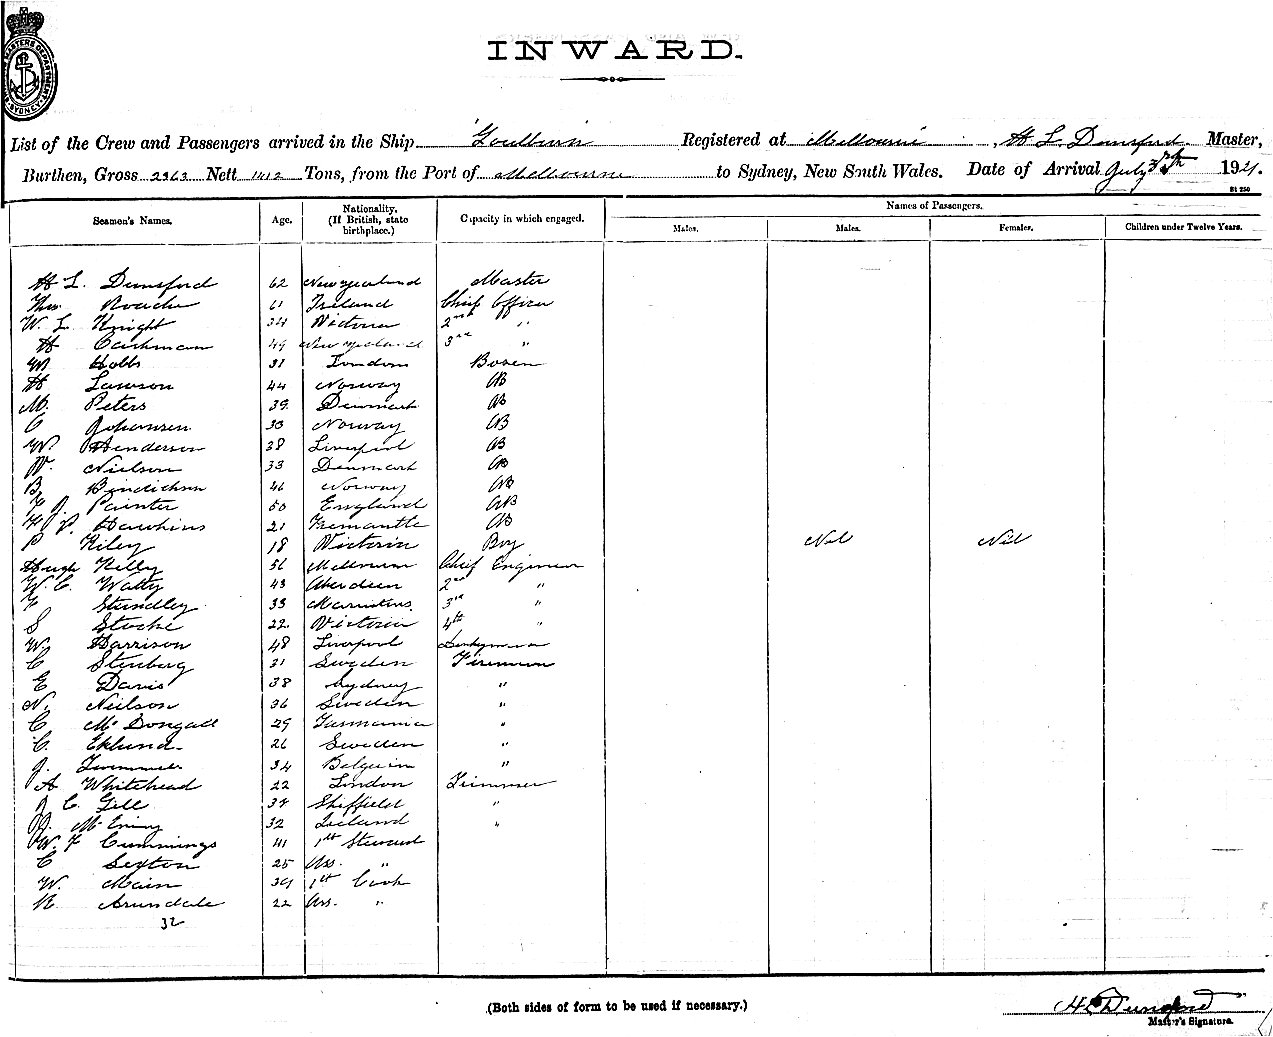 MASTERS DEPARTMENT
SYDNEY
INWARD.
List of the Crew and Passengers arrived in the Ship Goulburn Registered at Melbourne, H L Dunsford Master,
Burthen, Gross 2363 Nett 1412 Tons, from the Port of Melbourne to Sydney, New South Wales. Date of Arrival July 1921.
St 250
Seamen's Names. Age. Nationality. (If British, state birthplace.) Capacity in which engaged. Names of Passengers.
Males. Males. Females. Children under Twelve Years.
H L Dunsford 62 New Zealand Master
Thos Roache 61 Ireland Chief Officer
W. L Knight 34 Victoria 2nd "
H Cashman 49 New Zealand 3rd "
W Hobbs 31 London Bosen
H Lawson 44 Norway AB
M. Peters 39 Denmark AB
C Johansen 30 Norway AB
W. Henderson 38 Liverpool AB
W. Nielson 33 Denmark AB
B Norway AB
F J. Painter 50 England AB
F P. Hawkins 21 Fremantle AB
P Kiley 18 Victoria Boy Nil Nil
Hugh Kelly 56 Melbourne Chief Engineer
W. C. Watty 43 Aberdeen 2nd "
F Standley 33 Mauritius. 3rd "
S 22 Victoria 4th "
W. Harrison 48 Liverpool Donkeyman
C Stenberg 21 Sweden Fireman
E Davis 38 Sydney "
N. Neilson 36 Sweden "
C McDongall 29 Tasmania "
C. Eklund 26 Sweden "
J. 34 Belguim "
A Whitehead 22 London Trimmer
J C. Gell Sheffield "
J. McEniry 32 Ireland "
W. F Cummings 41 1st Steward
C Sexton 25 Ass. "
W. Main 39 1st Cook
R Arundale 22 Ass. "
32
(Both sides of form to be used if necessary.)
H L Dunsford
Master's Signature.